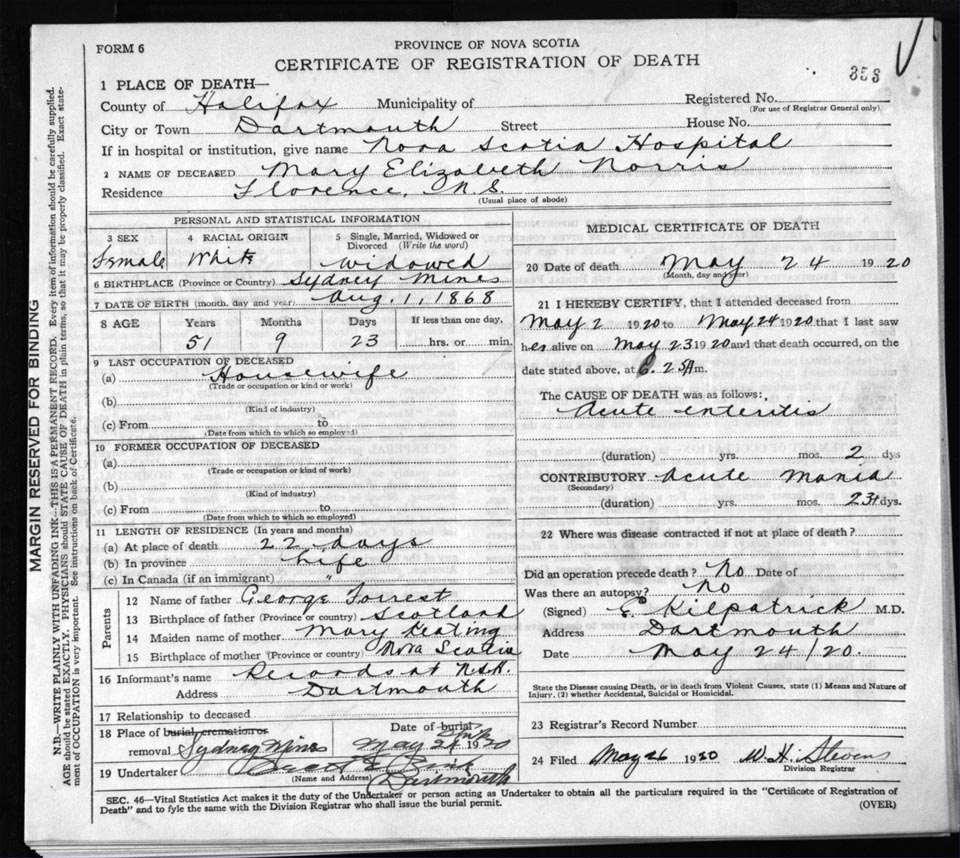 FORM 6
PROVINCE OF NOVA SCOTIA
CERTIFICATE OF REGISTRATION OF DEATH
353
1 PLACE OF DEATH—
County of Halifax Municipality of
Registered No.
(For use of Registrar General only)
City or Town Dartmouth Street House No.
If in hospital or institution, give name Nova Scotia Hospital
2 NAME OF DECEASED Mary Elizabeth Norris
Residence Florence, N.S.
(Usual place of abode)
PERSONAL AND STATISTICAL INFORMATION
3 SEX 4 RACIAL ORIGIN 5 Single, Married, Widowed or
Divorced (Write the word)
Female White widowed
6 BIRTHPLACE (Province or Country) Sydney Mines
7 DATE OF BIRTH (month, day and year) Aug. 1, 1868
8 AGE Years Months Days If less than one day,
51 9 23 hrs. or min.
9 LAST OCCUPATION OF DECEASED
(a) Housewife
(Trade or occupation or kind of work)
(b)
(Kind of industry)
(c) From to
(Date from which to which so employed)
10 FORMER OCCUPATION OF DECEASED
(a)
(Trade or occupation or kind of work)
(b)
(Kind of industry)
(c) From to
(Date from which to which so employed)
11 LENGTH OF RESIDENCE (In years and months)
(a) At place of death 22 days
(b) In province Life
(c) In Canada (if an immigrant) "
Parents
12 Name of father George Forrest
13 Birthplace of father (Province or country) Scotland
14 Maiden name of mother Mary Keating
15 Birthplace of mother (Province or country) Nova Scotia
16 Informant's name Records at N.S.H.
Address Dartmouth
17 Relationship to deceased
18 Place of burial, cremation or Date of burial
removal Sydney Mines May 24 1920
19 Undertaker
(Name and Address) Dartmouth
MEDICAL CERTIFICATE OF DEATH
20 Date of death May 24 1920
(Month, day and year)
21 I HEREBY CERTIFY, that I attended deceased from
May 2 1920 to May 24 1920 that I last saw
her alive on May 23 1920 and that death occurred, on the
date stated above, at m.
The CAUSE OF DEATH was as follows:
Acute enteritis
(duration) yrs. mos. 2 dys
CONTRIBUTORY Acute Mania
(Secondary)
(duration) yrs. mos. 23+ dys.
22 Where was disease contracted if not at place of death?
Did an operation precede death? No Date of
Was there an autopsy? No
(Signed) Kilpatrick M.D.
Address Dartmouth
Date May 24/20.
State the Disease causing Death, or in death from Violent Causes, state (1) Means and Nature of
Injury, (2) whether Accidental, Suicidal or Homicidal.
23 Registrar's Record Number
24 Filed May 26 1920 W. H. Stevens
Division Registrar
SEC. 46—Vital Statistics Act makes it the duty of the Undertaker or person acting as Undertaker to obtain all the particulars required in the "Certificate of Registration of
Death" and to fyle the same with the Division Registrar who shall issue the burial permit.
(OVER)
MARGIN RESERVED FOR BINDING
N.B.—WRITE PLAINLY WITH UNFADING INK—THIS IS A PERMANENT RECORD. Every item of information should be carefully supplied.
AGE should be stated EXACTLY. PHYSICIANS should STATE CAUSE OF DEATH in plain terms, so that it may be properly classified. Exact state-
ment of OCCUPATION is very important. See instructions on back of Certificate.